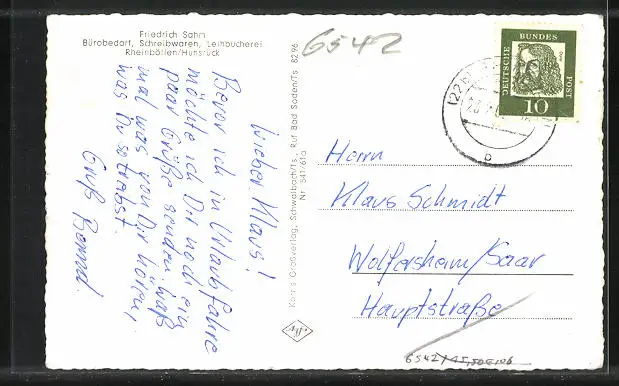 Friedrich Sahm
Bürobedarf, Schreibwaren, Leihbücherei
Rheinböllen/Hunsrück
6542
Lieber Klaus!
Bevor ich in Urlaub fahre
möchte ich Dir noch ein
paar Grüße senden. Laß
mal was von Dir hören,
was Du so treibst.
Gruß Bernd.
Korr's Großverlag, Schwalbach/Ts., Ruf Bad Soden/Ts. 8296
Nr. 541/61a
Agfa
DEUTSCHE
BUNDES
POST
10
(22b)
b
Herrn
Klaus Schmidt
Wolfersheim/Saar
Hauptstraße
6542/